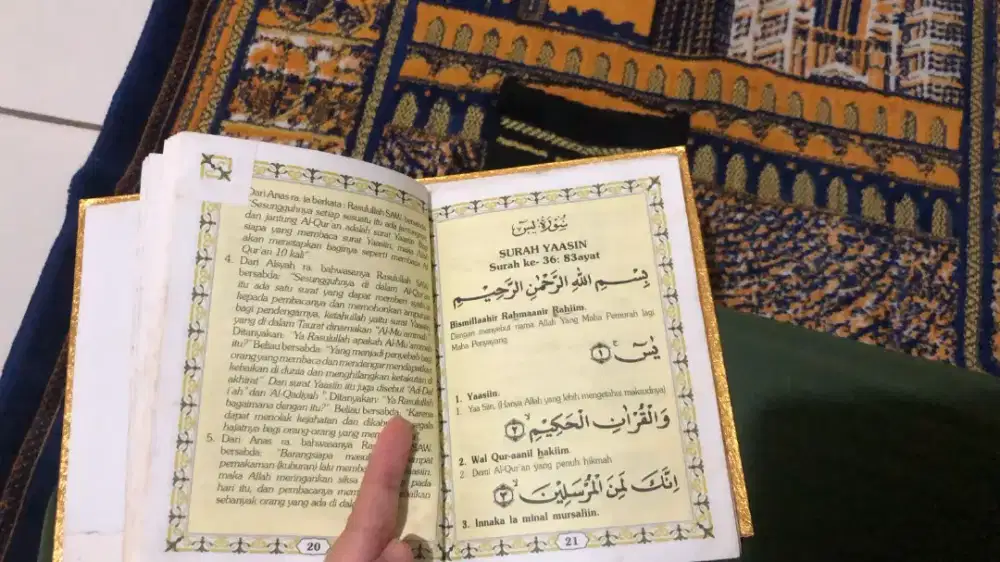 Dari Anas ra. ia berkata : Rasulullah SAW.
"Sesungguhnya setiap sesuatu itu ada jantung
dan jantung Al-Qur'an adalah surat Yaasiin.
siapa yang membaca surat Yaasiin, maka
akan menetapkan baginya seperti membaca Al
Qur'an 10 kali"
4. Dari Aisyah ra. bahwasanya Rasulullah SAW.
bersabda: "Sesungguhnya di dalam Al-Qur'an
itu ada satu surat yang dapat memberi
kepada pembacanya dan memohonkan ampunan
bagi pendengarnya, ketahuilah yaitu surat Yaasiin,
yang di dalam Taurat dinamakan "Al-Mu'ammah"
Ditanyakan: "Ya Rasulullah apakah Al-Mu'ammah
itu?" Beliau bersabda: "Yang menjadi penyebab bagi
orang yang membaca dan mendengar mendapatkan
kebaikan di dunia dan menghilangkan ketakutan di
akhirat". Dan surat Yaasiin itu juga disebut "Ad-Daf
i'ah" dan Al-Qadiyah". Ditanyakan: "Ya Rasulullah
bagaimana dengan itu?" Beliau bersabda: "Karena
dapat menolak kejahatan dan segala
hajatnya bagi orang-orang yang
5. Dari Anas ra. bahwasanya SAW.
bersabda: "Barangsiapa
pemakaman (kuburan) lalu Yaasiin,
maka Allah meringankan siksa pada
hari itu, dan pembacanya
sebanyak orang yang ada di
20
سُوْرَةُ يٰسٓ
SURAH YAASIN
Surah ke- 36: 83ayat
بِسْمِ اللّٰهِ الرَّحْمٰنِ الرَّحِيْمِ
Bismillaahir Rahmaanir Rahiim.
Dengan menyebut nama Allah Yang Maha Pemurah lagi
Maha Penyayang
يٰسٓ ۚ ﴿١﴾
1. Yaasiin.
1. Yaa Siin. (Hanya Allah yang lebih mengetahui maksudnya)
وَالْقُرْاٰنِ الْحَكِيْمِ ۙ ﴿٢﴾
2. Wal Qur-aanil hakiim.
2. Demi Al-Qur'an yang penuh hikmah
اِنَّكَ لَمِنَ الْمُرْسَلِيْنَ ۙ ﴿٣﴾
3. Innaka la minal mursaliin.
21